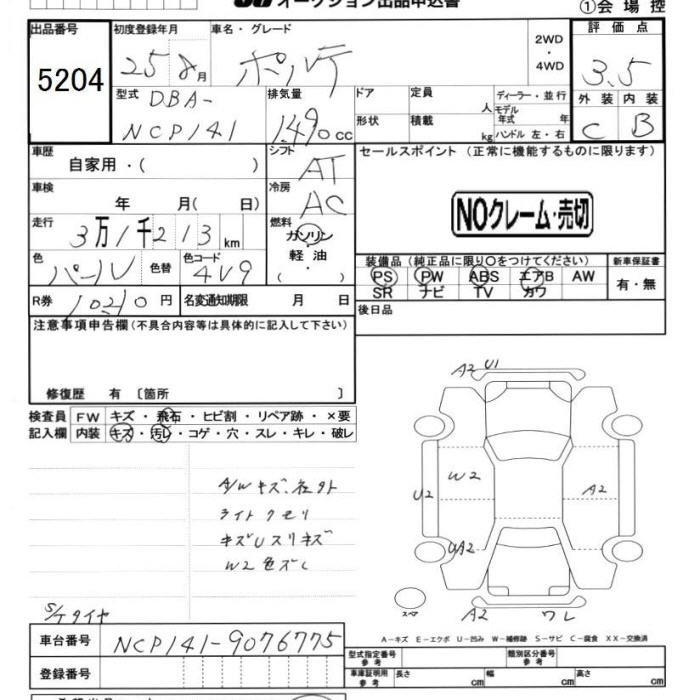 オークション出品申込書
①会場控
出品番号
5204
初度登録年月
25 8月
車名・グレード
ポルテ
2WD
・
4WD
評価点
3.5
型式
DBA-
NCP141
排気量
1490cc
ドア
定員 人
形状
積載 kg
ディーラー・並行
モデル年式 年
ハンドル 左・右
外装 内装
C B
車歴
自家用・( )
シフト
AT
セールスポイント (正常に機能するものに限ります)
車検
年 月( 日)
冷房
AC
NOクレーム・売切
走行
3万1千213km
燃料
ガソリン
軽油
・( )
色
パール
色替
色コード
4V9
装備品(純正品に限り○をつけてください)
PS PW ABS エアB AW
SR ナビ TV カワ
新車保証書
有・無
R券
10210円
名変通知期限 月 日
後日品
注意事項申告欄(不具合内容等は具体的に記入して下さい)
修復歴 有 〔箇所 〕
検査員記入欄
FW キズ・飛石・ヒビ割・リペア跡・×要
内装 キズ・汚レ・コゲ・穴・スレ・キレ・破レ
A/Wキズ.社外
ライトクモリ
キズUスリキズ
W2色ズレ
S/Tタイヤ
A2 U1
W2
U2
A2
UA2
スペア
A2 ワレ
A-キズ E-エクボ U-凹み W-補修跡 S-サビ C-腐食 XX-交換済
車台番号
NCP141-9076775
登録番号
型式指定番号
参考
類別区分番号
参考
車庫証明用
参考
長さ cm
幅 cm
高さ cm